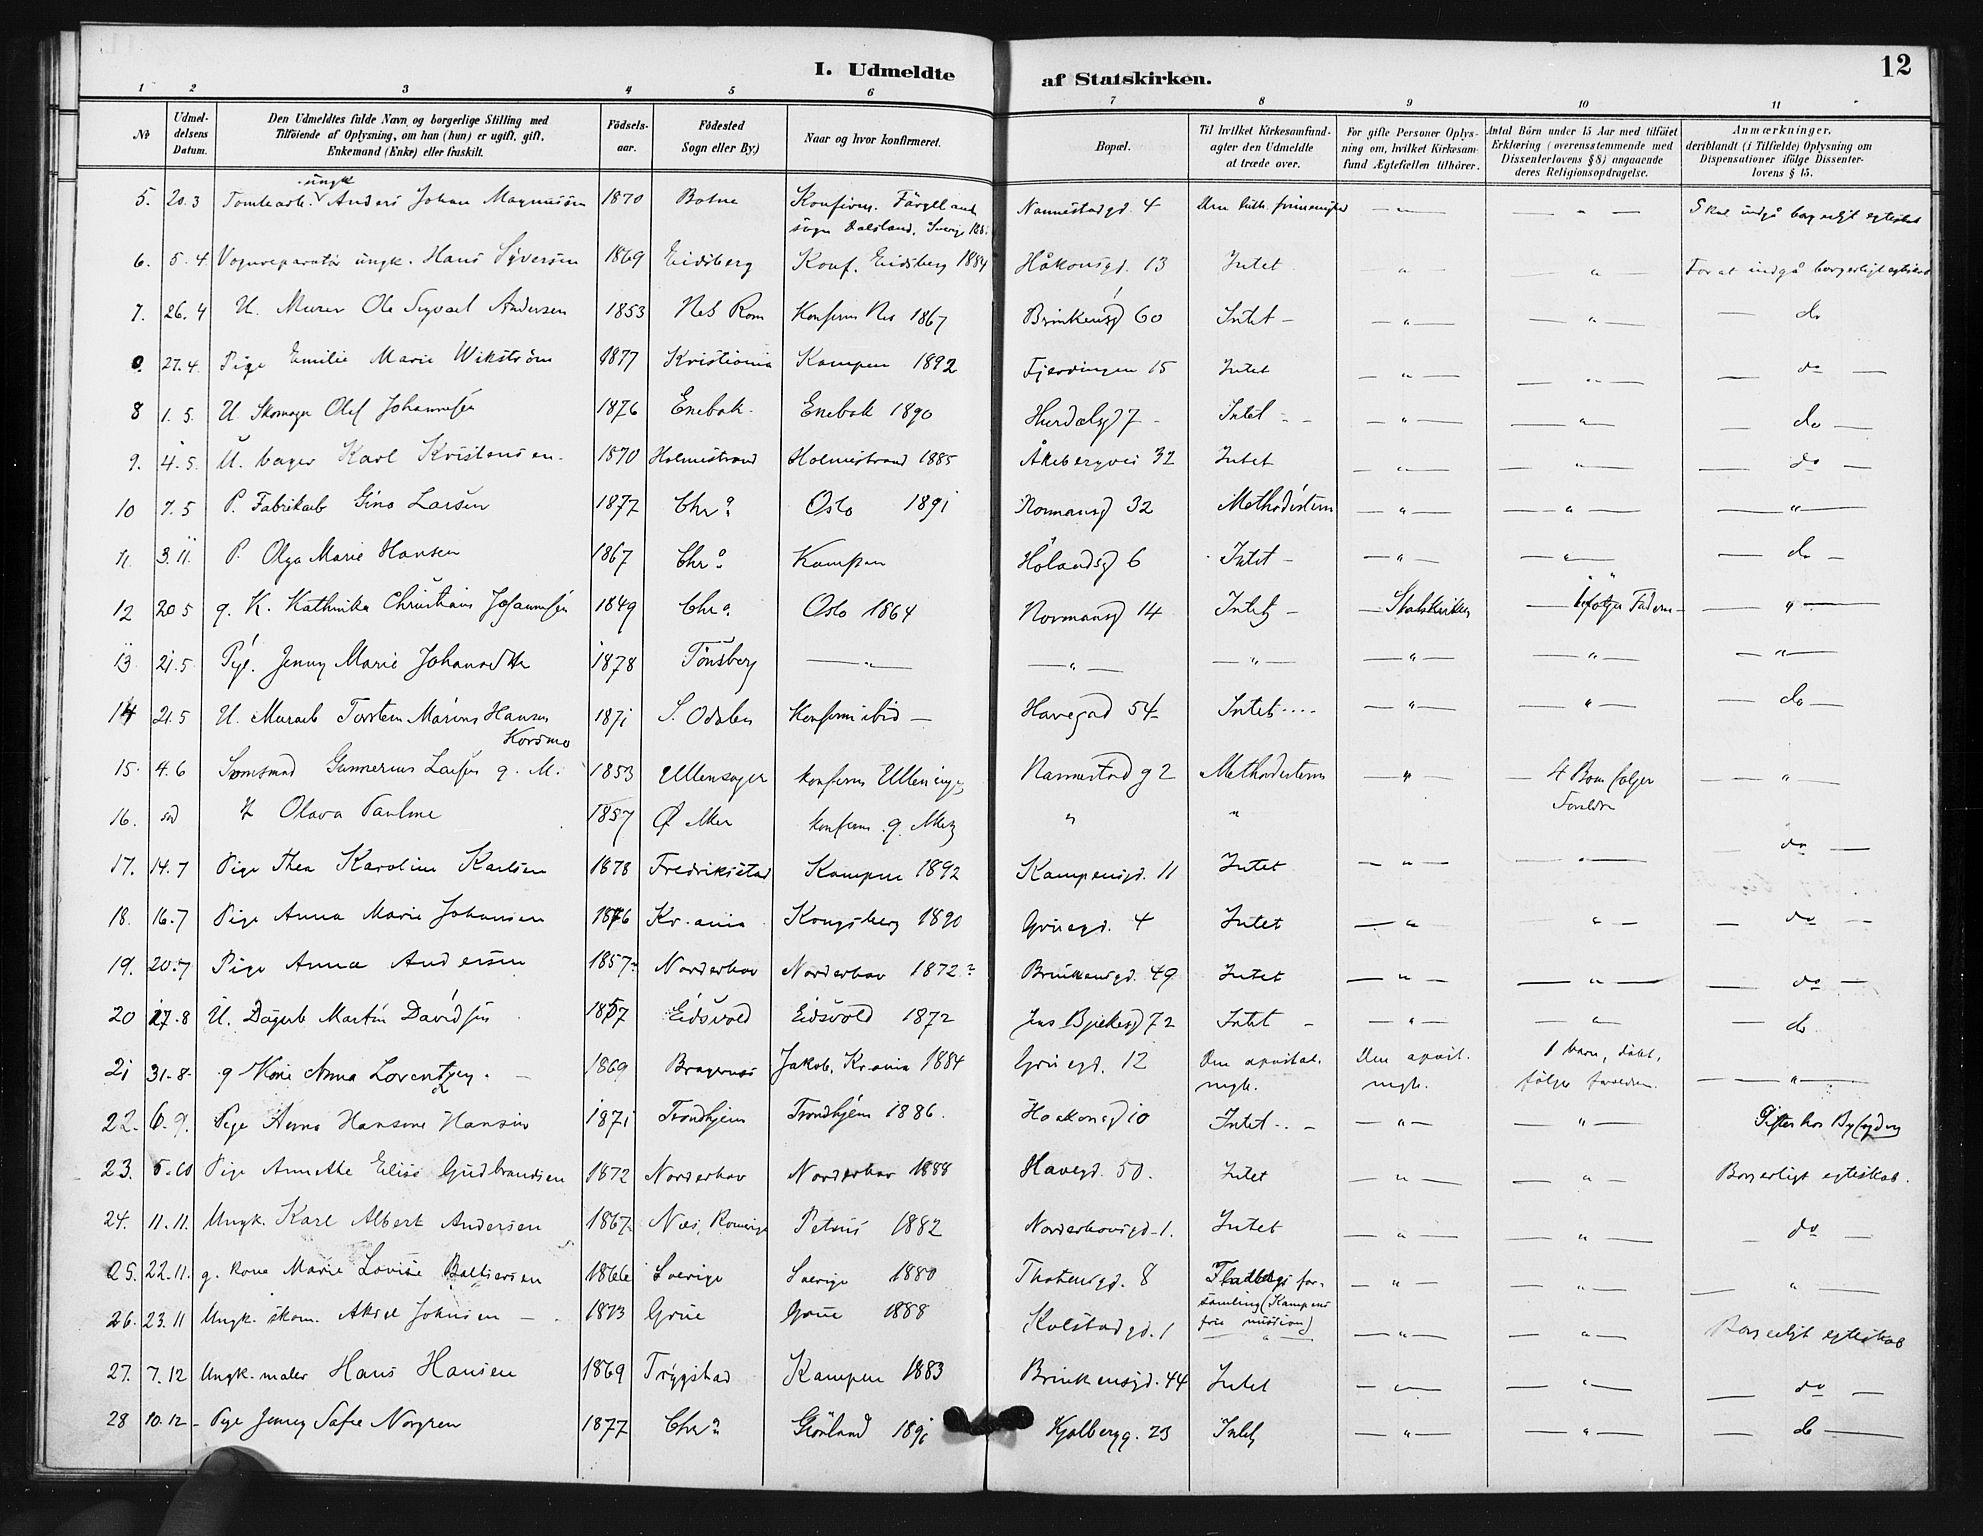 I. Udmeldte af Statskirken. 12
1 2 3 4 5 6 7 8 9 10 11
No
Udmeldelsens Datum.
Den Udmeldtes fulde Navn og borgerlige Stilling med
Tilföiende af Oplysning, om han (hun) er ugift, gift,
Enkemand (Enke) eller fraskilt.
Födselsaar.
Födested
Sogn eller By.)
Naar og hvor konfirmeret.
Bopæl.
Til hvilket Kirkesamfund
agter den Udmeldte
at træde over.
For gifte Personer Oplysning
om, hvilket Kirkesamfund
Ægtefællen tilhörer.
Antal Börn under 15 Aar med tilföiet
Erklæring (overensstemmende med
Dissenterlovens § 8) angaaende
deres Religionsopdragelse.
Anmærkninger,
deriblandt (i Tilfælde) Oplysning om
Dispensationer ifölge Dissenterlovens
§ 15.
5. 20.3 Tomtearb. ungk Anders Johan Magnusson 1870 Botne Konfirm. Färgelanda sogn Dalsland, Sverige Nannestadgd. 4 Den luth. frimenighed — " — — " — Skal indgå borgerligt egteskab
6. 5.4. Vognreparatör ungk. Hans Syversen 1869 Eidsberg Konf. Eidsberg 1884 Håkonsgd. 13 Intet " " For at indgå borgerligt egteskab
7. 26.4 U. Murer Ole Sigvart Andersen 1853 Nes Rom Konfirm Nes 1867 Brinkensgd 60 Intet — — " — — " — — do
27.4. Pige Emilie Marie Wikström 1877 Kristiania Kampen 1892 Fjerdingen 15 Intet — " — — " — — do —
8 1.5. U Skomager Olaf Johannesen 1876 Enebak. Enebak 1890 Hurdalsgd 7 Intet — " — — " — — do —
9. 4.5. U. bager Karl Kristensen. 1870 Holmestrand Holmestrand 1885 Åkebergvei 32 Intet — " — — " — — do —
10 7.5 P. Fabrikarb Gina Larsen 1877 Chra Oslo 1891 Normansgd 32 Methodisterne — " — — " — — " —
11. 3.11. P. Olga Marie Hansen 1867 Chra Kampen Hölandsgd 6 Intet — — " — — " — — do —
12 20.5 g. K. Kathinka Christians Johannesen 1849 Chra Oslo 1864 Normansgd 14 Intet — — Statskirken — følger Faderen — — " —
13 21.5. Pige. Jenny Marie 1878 Tönsberg — " — — " — — " — — " — — " — — " —
14 21.5 U. Murarb Torsten Marius Hansen Kordmo 1871 S. Odalen Konfirm ibid — Havegad 54 Intet .... — " — — " — — do —
15. 4.6 Gunnerius Larsen g. M. 1853 Ullensager konfirm Nannestad g 2 Methodisterne — " — 4 Børn følger Foreldre — " —
16. Olava Pauline 1857 Ø Aker konfirm. " "
17. 14.7 Pige Thea Karoline Karlsen 1878 Fredriksstad Kampen 1892 Kampensgd. 11 Intet — " — — " — — do —
18. 16.7 Pige Anna Marie Johansen 1876 Kr.ania Kongsberg 1890 Grüegd. 4 Intet — " — " — — do —
19. 20.7 Pige Anna Andersen 1857? Norderhov Norderhov 1872? Brinkensgd. 49 Intet — " — — " — — do —
20 17.8 U. Dagarb Martin Davidsen 1857 Eidsvold Eidsvold 1872 Jens Bjelkesgd 72 Intet — — " — — " — — do
21 31.8. g Kone Anna Lorentzen. — 1869 Bragernes Jakob, Kr.ania 1884 Grüegd. 12 Den apostol. mgh. Den apost. mgh. 1 barn, döbt, følger forældrene. — " —
22. 6.9. Pige Anna Hansine Hansen 1871 Trondhjem Trondhjem 1886. Haakonsgd 10 Intet.. — — " — — " — Giftes hos Byfogden
23. 5.10 Pige Annethe Elise Gudbrandsen 1872 Norderhov Norderhov 1888 Havegd. 50. Intet — " — — " — Borgerligt egteskab.
24. 11.11. Ungk. Karl Albert Andersen 1867 Nes, Romerige Petrus 1882 Norderhovsgd. 1. Intet — " — — " — — do —
25. 22.11. g. kone Marie Lovise Baltzersen 1866 Sverige Sverige 1880 Thotensgd. 8 forsamling (Kampens frie mission) — " — — " — — " —
26. 23.11 Ungk. skom. Aksel Johnsen — 1873 Grue Grue 1888 Kolstadgd. 1 — " — — " — — " — Borgerligt egteskab
27. 7.12 Ungk. maler Hans Hansen 1869 Trygstad Kampen 1883 Brinkensgd. 44 Intet — " — — " — — do —
28 10.12 — Pige Jenny Sofie Norgren 1877 Chra Grönland 1891 Kjølbergg. 23 Intet — " — — " — — do —